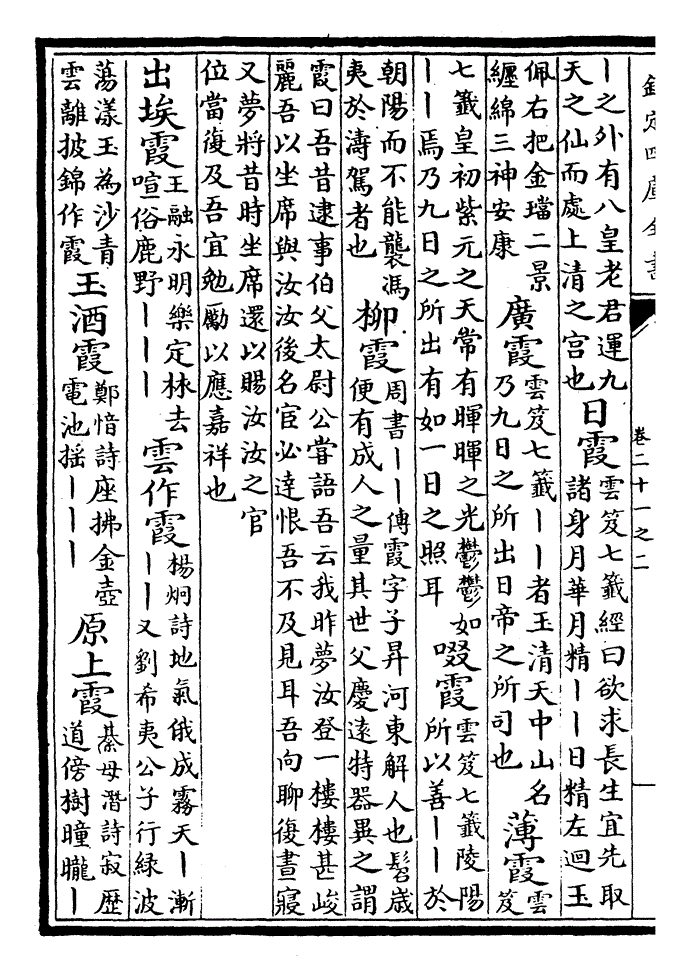 欽定四庫全書
卷二十一之二
丨之外有八皇老君運九
天之仙而處上清之宫也
日霞
雲笈七籤經曰欲求長生宜先取
諸身月華月精丨丨日精左迴玉
佩右把金璫二景
纏綿三神安康
廣霞
雲笈七籤丨丨者玉清天中山名
乃九日之所出日帝之所司也
薄霞
雲
笈
七籤皇初紫元之天常有暉暉之光鬱鬱如
丨丨焉乃九日之所出有如一日之照耳
啜霞
雲笈七籤陵陽
所以善丨丨於
朝陽而不能襲馮
夷於濤駕者也
柳霞
周書丨丨傳霞字子昇河東解人也髫歲
便有成人之量其世父慶遠特器異之謂
霞曰吾昔逮事伯父太尉公嘗語吾云我昨夢汝登一樓樓甚峻
麗吾以坐席與汝汝後名宦必達恨吾不及見耳吾向聊復晝寢
又夢將昔時坐席還以賜汝汝之官
位當復及吾宜勉勵以應嘉祥也
出埃霞
王融永明樂定林去
喧俗鹿野丨丨丨
雲作霞
楊炯詩地氣俄成霧天丨漸
丨丨又劉希夷公子行緑波
蕩漾玉為沙青
雲離披錦作霞
玉酒霞
鄭愔詩座拂金壺
電池揺丨丨丨
原上霞
綦毋潛詩寂歷
道傍樹曈曨丨